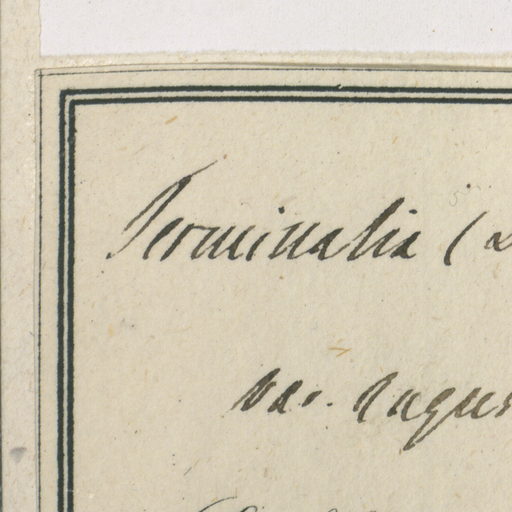 Terminalia (
var. angus